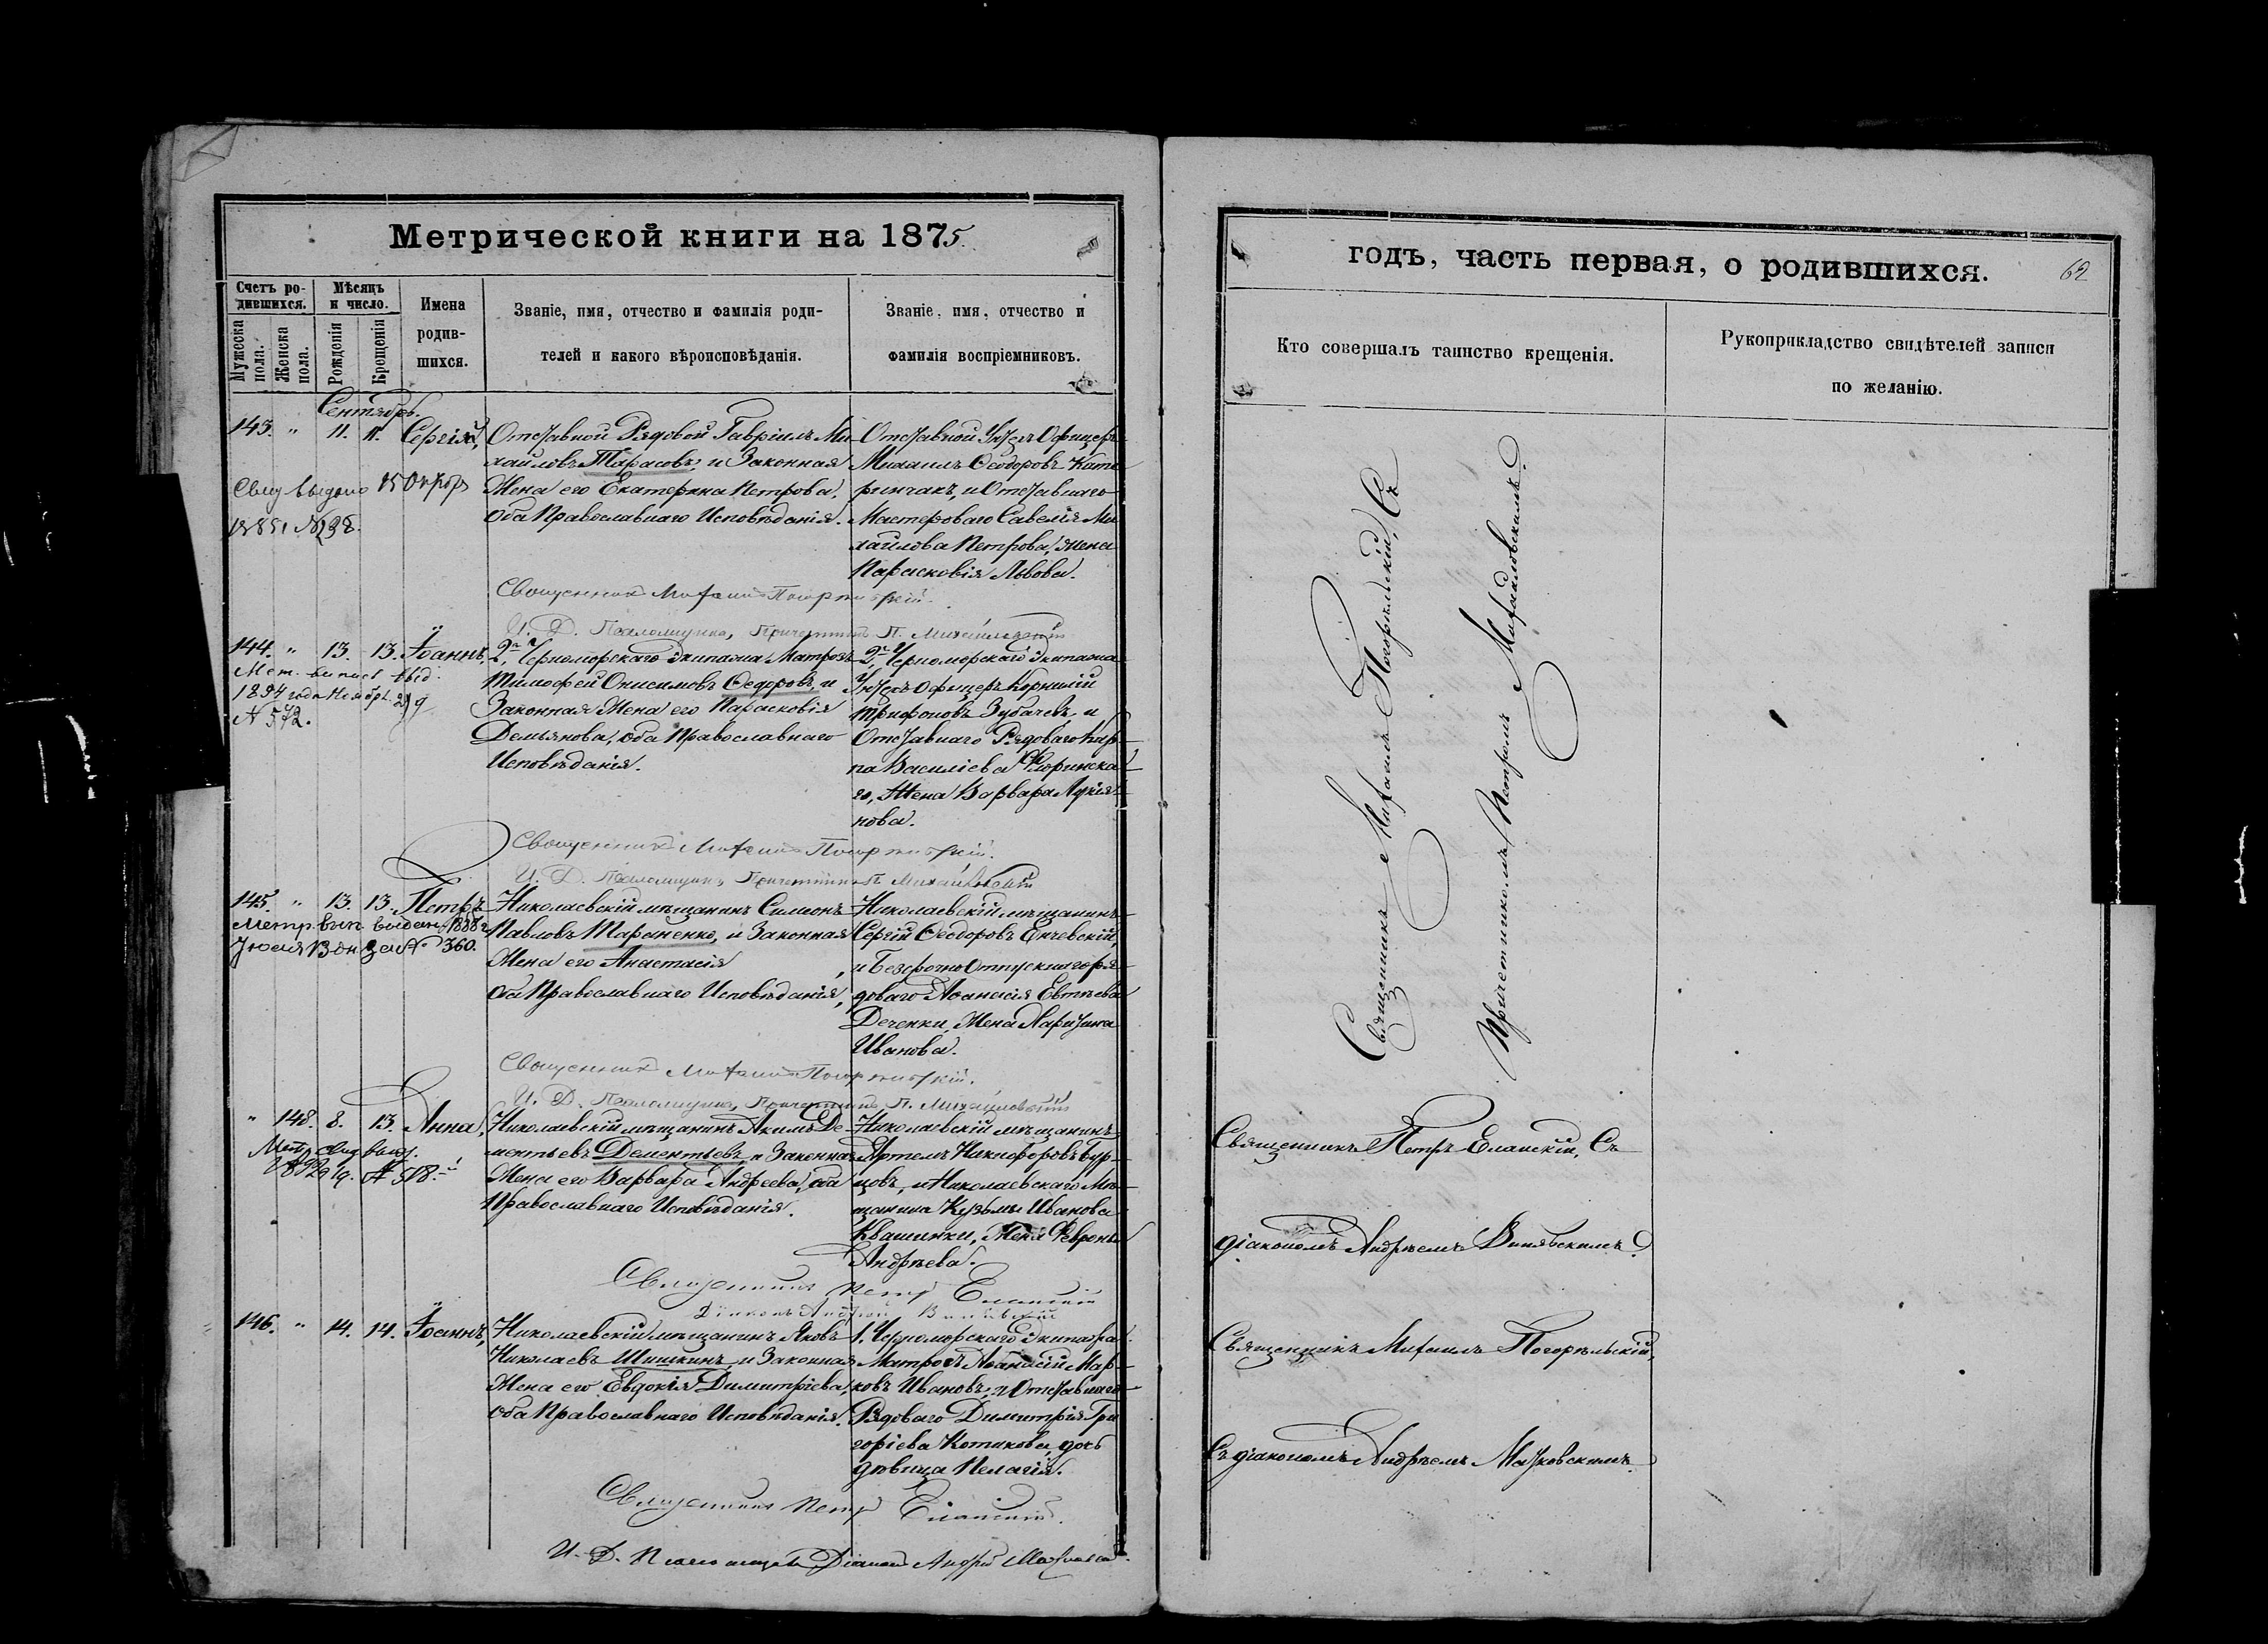 Метрической книги на 1875
Счетъ родившихся.
Мужеска пола.
Женска пола.
Мѣсяцъ и число.
Рожденія
Крещенія
Имена родившихся.
Званіе, имя, отчество и фамилія родителей и какого вѣроисповѣданія.
Званіе, имя, отчество и фамилія воспріемниковъ.
Сентябрь.
143. " 11. 11. Сергій,
Отставной Рядовой Гавріилъ Ми-
хайловъ Тарасовъ, и Законная
Жена его Екатерина Петрова,
Оба Православнаго Исповѣданія.
Отставной Унтеръ Офицеръ
Михаилъ Ѳеодоровъ
и Отставнаго
Мастероваго Савелія Ми-
хайлова Петрова, жена
Парасковія Львова.
Свид выдано 15
1885 г №
Священникъ Михаилъ Погорѣльскій.
И. Д. Псаломщика, Причетникъ П. Михайловскій
144. " 13. 13. Іоаннъ,
2го Черноморскаго Экипажа Матрозъ
Тимофей Онисимовъ Ѳедоровъ, и
Законная Жена его Парасковія
Демьянова, оба Православнаго
Исповѣданія.
2го Черноморскаго Экипажа
Унтеръ Офицеръ Корнилій
Трифоновъ Зубачевъ, и
Отставнаго Рядоваго Кир-
па Василіева
го, Жена Варвара Лукія-
нова.
Мет. выпис выд.
1894 года Ноябр. 29 д
№ 572.
Священникъ Михаилъ Погорѣльскій.
И. Д. Псаломщика, Причетникъ П. Михайловскій
145. " 13. 13. Петръ
Николаевскій мѣщанинъ Симеонъ
Павловъ Тараненко, и Законная
Жена его Анастасія ,
Оба Православнаго Исповѣданія,
Николаевскій мѣщанинъ
Сергій Ѳеодоровъ Енчевскій,
и Безсрочно Отпускнаго ря-
доваго Аѳанасія Евтѣева
Деченки, Жена
Иванова.
Метр. вып. выдан. 1888 г.
Іюля 13 дн. за № 360.
Священникъ Михаилъ Погорѣльскій.
И. Д. Псаломщика, Причетникъ П. Михайловскій
" 148. 8. 13. Анна,
Николаевскій мѣщанинъ Акимъ Де-
ментьевъ Дементьевъ, и Законная
Жена его Варвара Андреева, оба
Православнаго Исповѣданія.
Николаевскій мѣщанинъ
Артемъ Никифоровъ Бур-
цовъ, и Николаевскаго Мѣ-
щанина Кузьмы Иванова
Квашнки, Жена Февронья
Андрѣева.
Метр. свид. выд.
№ 518.
Священникъ Петръ Еланскій
Діаконъ Андрей
146. " 14. 14. Іоаннъ,
Николаевскій мѣщанинъ Яковъ
Николаевъ Шишкинъ, и Законная
Жена его Евдокія Димитріева,
Оба Православнаго Исповѣданія.
1. Черноморскаго Экипажа
Матрозъ Аѳанасій Мар-
ковъ Ивановъ, и Отставнаго
Рядоваго Димитрія Гри-
горіева Котикова, дочь
дѣвица Пелагія.
Священникъ Петръ Еланскій.
И. Д. Псаломщика Діаконъ Андрей
годъ, часть первая, о родившихся.
62
Кто совершалъ таинство крещенія.
Рукоприкладство свидѣтелей записи по желанію.
Священникъ Михаилъ Погорѣльскій, Съ
Причетникомъ Петромъ Михайловскимъ.
Священникъ Петръ Еланскій, Съ
діакономъ Андрѣемъ
Священникъ Михаилъ Погорѣльскій,
Съ діакономъ Андрѣемъ